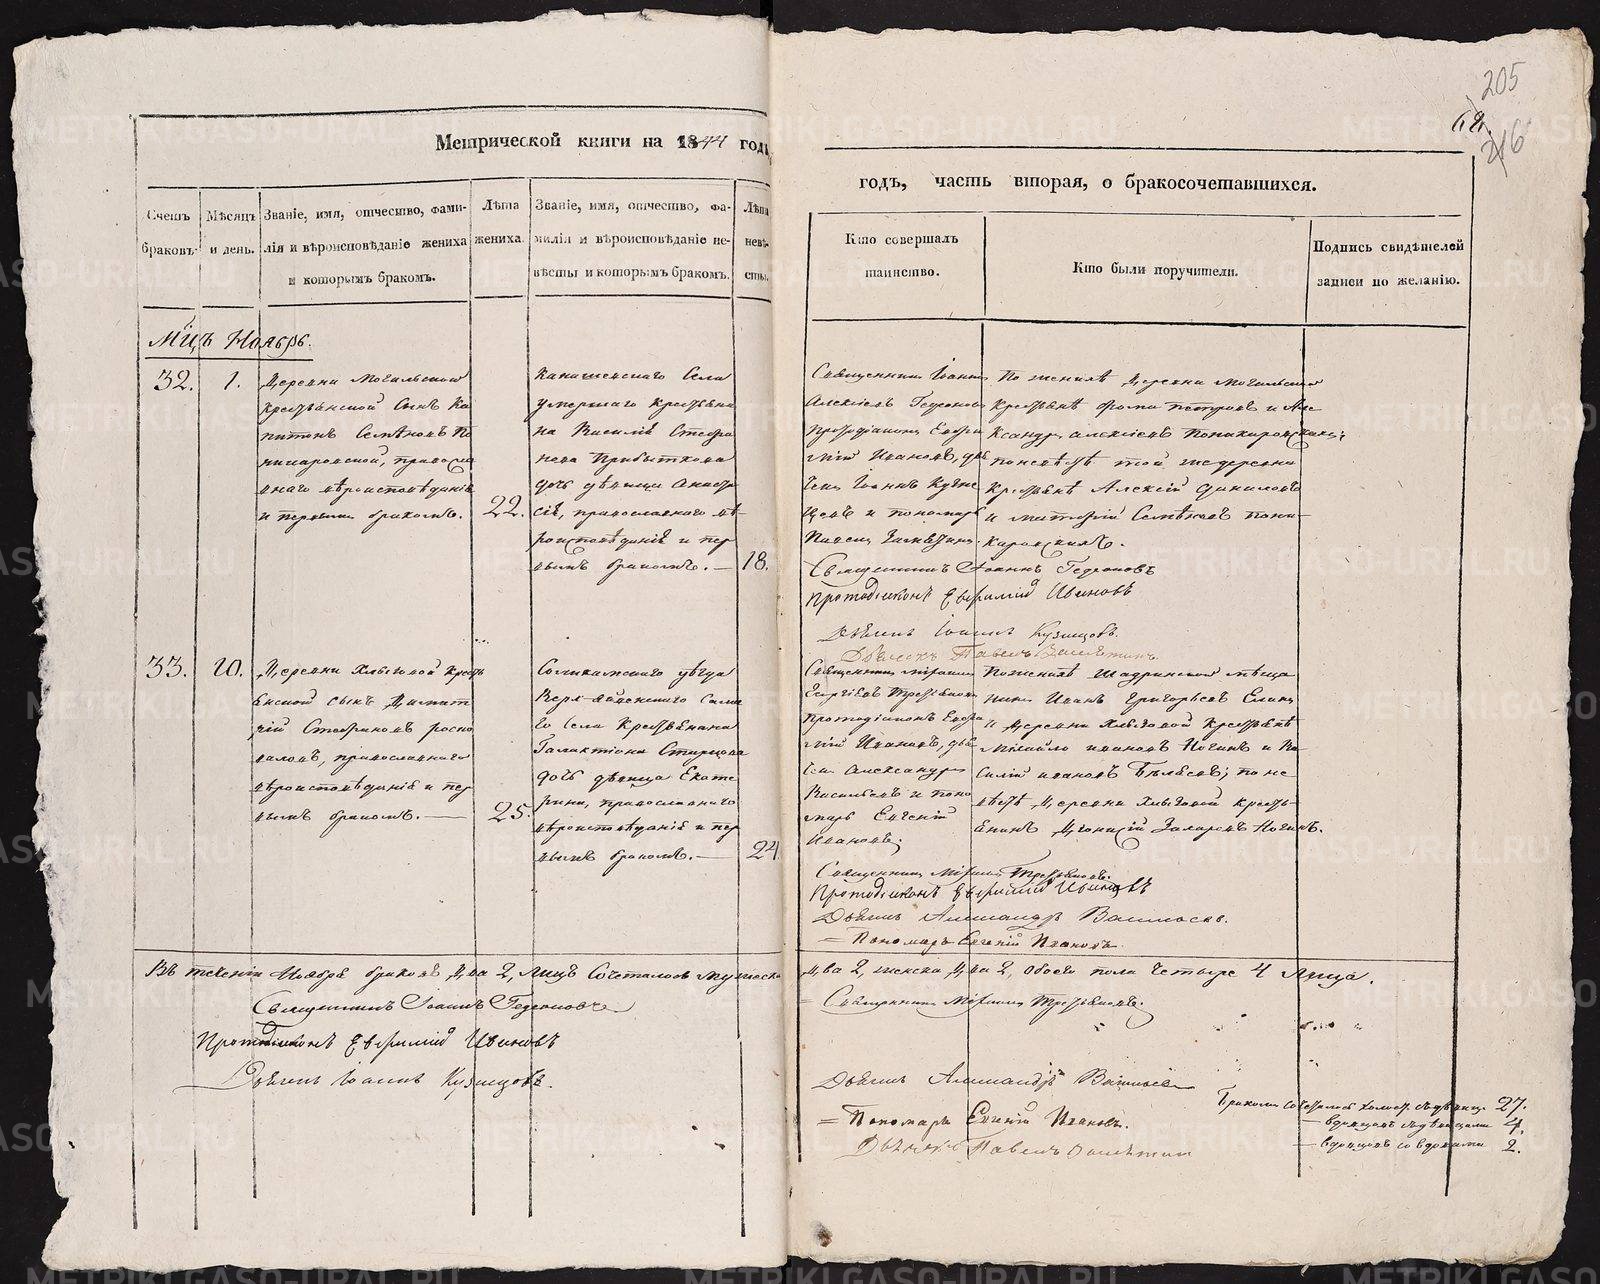 205
68.
216
Метрической книги на 1844 годъ
годъ, часть вторая, о бракосочетавшихся.
Счетъ
браковъ.
Мѣсяцъ
и день.
Званіе, имя, отчество, фами-
лія и вѣроисповѣданіе жениха
и которымъ бракомъ.
Лѣта
жениха.
Званіе, имя, отчество, фа-
милія и вѣроисповѣданіе не-
вѣсты и которымъ бракомъ.
Лѣта
невѣ-
сты.
Кто совершалъ
таинство.
Кто были поручители.
Подпись свидѣтелей
записи по желанію.
Мцъ Ноябрь.
32.
1.
Деревни Могильской
крестьянской сынъ Ка
питонъ Семѣновъ По
никаровской, правосла
внаго вѣроисповѣданія
и первымъ бракомъ.
22.
Канашевскаго Села
умершаго крестьяни
на Василія Стефа
нова Прибыткова
дочь дѣвица Анаста
сія, православнаго вѣ-
роисповѣданія и пер
вымъ бракомъ. —
18.
Священникъ Іоаннъ
Алексіевъ Гедеоновъ
Протодіаконъ Евфи
мій Ивановъ, дья
чекъ Іоаннъ Кузне
цовъ и пономарь
Павелъ
По женихѣ деревни Могильской
крестьянѣ Фома Петровъ и Але
ксандръ Алексіевъ Поникаровскихъ;
по невѣстѣ той же деревни
крестьянѣ Алексій Даниловъ
и Семѣновъ Пони-
каровскихъ.
Священникъ Іоаннъ Гедеоновъ
Протодіаконъ Евфимій Ивановъ
Дьячекъ Іоаннъ Кузнецовъ.
Дьячекъ Павелъ
33.
10.
Деревни Хлызовой кресть
янской сынъ Димит
рій Стефановъ
православнаго
вѣроисповѣданія и пер
вымъ бракомъ. —
25.
Соликамскаго уѣзда
Верх-
го Села крестьянина
Галактіона Старцова
дочь дѣвица Екате
рина, православнаго
вѣроисповѣданія и пер
вымъ бракомъ. —
24.
Священникъ
Георгіевъ
Протодіаконъ Евфи
мій Ивановъ, дья
чекъ Александръ
Васильевъ и поно
марь Евгеній
Ивановъ;
По женихѣ Шадринской мѣща
нинъ Иванъ Григорьевъ
и деревни Хлызовой крестьянѣ
Михайло Ивановъ Ночинъ и Ва
силій Ивановъ Бѣляевъ; по не
вѣстѣ деревни Хлызовой кресть-
янинъ Діонисій Захаровъ Ночинъ.
Священникъ
Протодіаконъ Евфимій Ивановъ
Дьячекъ Александръ Васильевъ.
= Пономарь Евгеній Ивановъ.
Въ теченіи Ноября браковъ два 2, лицъ сочеталось мужеска
два 2, женска два 2, обоего пола четыре 4 лица.
Священникъ Іоаннъ Гедеоновъ
Протодіаконъ Евфимій Ивановъ
Дьячекъ Іоаннъ Кузнецовъ.
Священникъ
Дьячекъ Александръ Васильевъ
= Пономарь Евгеній Ивановъ.
Дьячекъ Павелъ
Бракомъ сочеталось холост. съ дѣвиц. 27.
— вдовцовъ съ дѣвицами 4.
— вдовцовъ со вдовами 2.